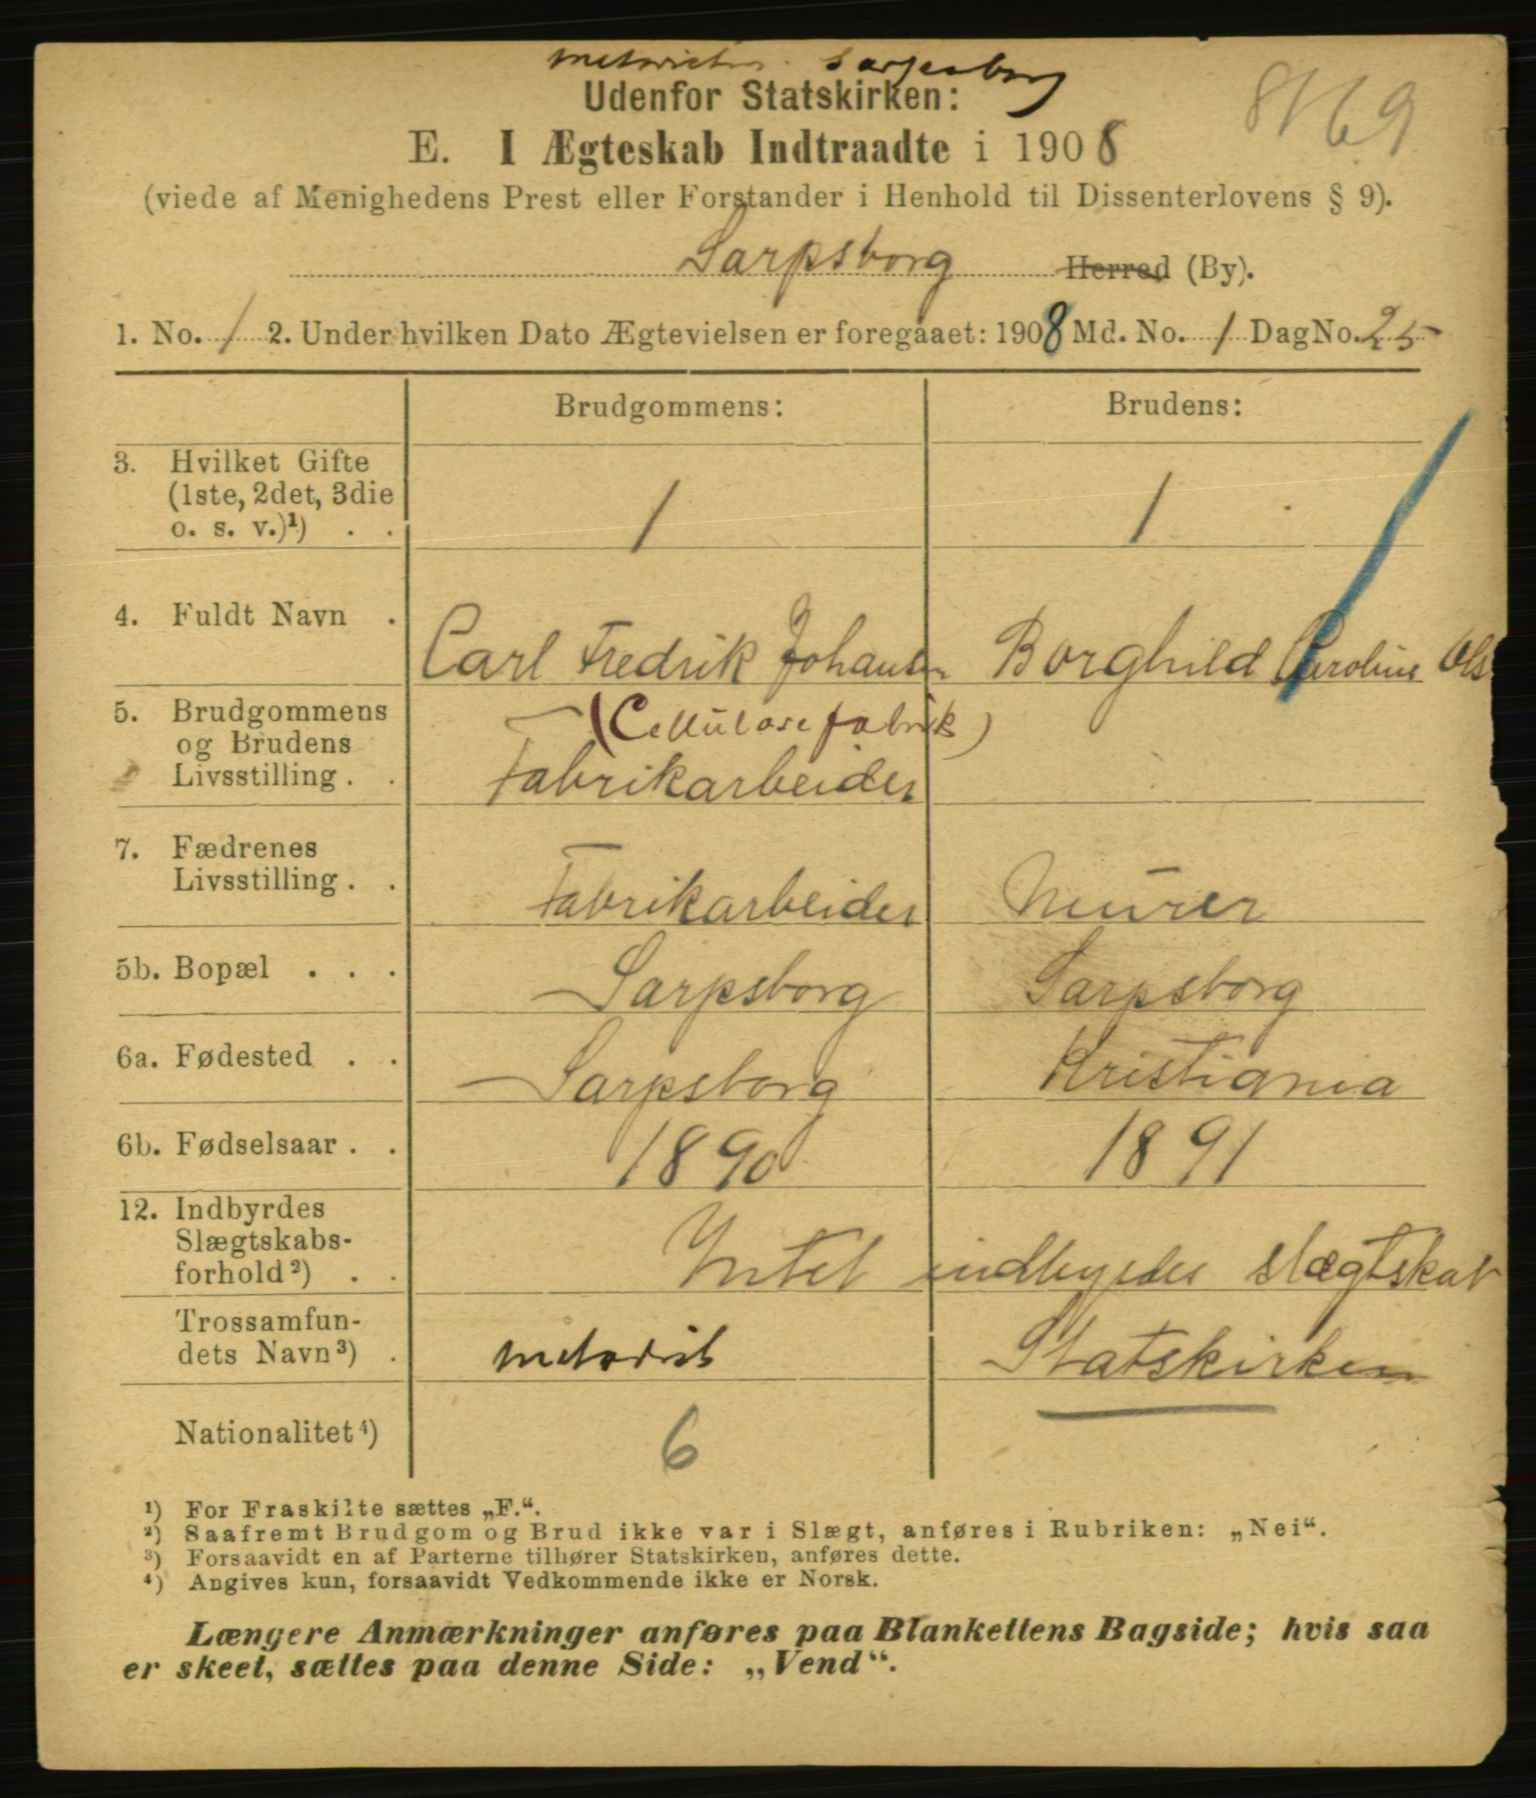 metodister Sarpsborg
Udenfor Statskirken:
8169
E. I Ægteskab Indtraadte i 1908
(viede af Menighedens Prest eller Forstander i Henhold til Dissenterlovens § 9).
Sarpsborg Herred (By).
1. No. 1 2. Under hvilken Dato Ægtevielsen er foregaaet: 1908 Md. No. 1 Dag No. 25
Brudgommens: Brudens:
3. Hvilket Gifte
(1ste, 2det, 3die
o. s. v.)¹) . . 1 1
4. Fuldt Navn . Carl Fredrik Johansen Borghild Caroline Ols
5. Brudgommens (Cellulosefabrik)
og Brudens
Livsstilling . . Fabrikarbeider
7. Fædrenes
Livsstilling . . Fabrikarbeider Murer
5b. Bopæl . . . Sarpsborg Sarpsborg
6a. Fødested . . Sarpsborg Kristiania
6b. Fødselsaar . . 1890 1891
12. Indbyrdes
Slægtskabs-
forhold²) . . Intet indbyrdes slægtskab
Trossamfun-
dets Navn³) . metodist Statskirken
Nationalitet⁴) 6
¹) For Fraskilte sættes „F.“.
²) Saafremt Brudgom og Brud ikke var i Slægt, anføres i Rubriken: „Nei“.
³) Forsaavidt en af Parterne tilhører Statskirken, anføres dette.
⁴) Angives kun, forsaavidt Vedkommende ikke er Norsk.
Længere Anmærkninger anføres paa Blankettens Bagside; hvis saa
er skeet, sættes paa denne Side: „Vend“.